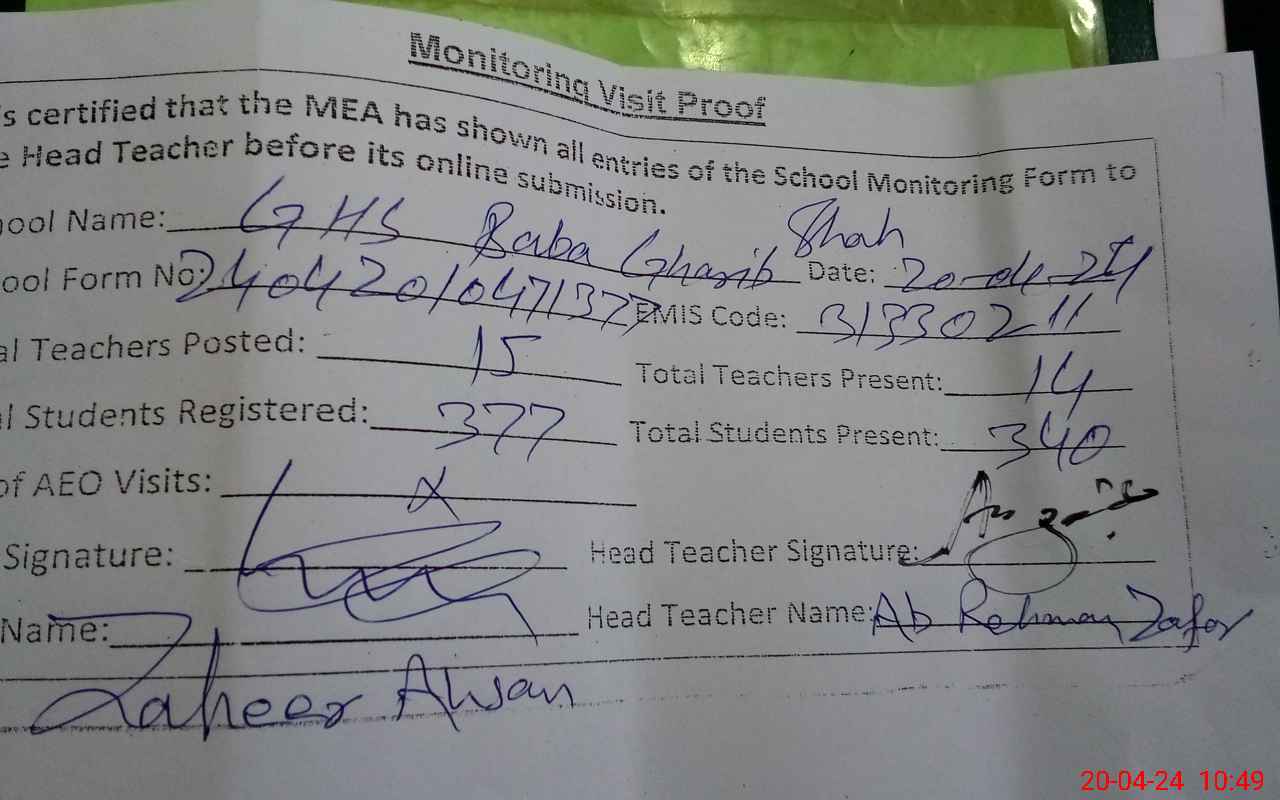 Monitoring Visit Proof
s certified that the MEA has shown all entries of the School Monitoring Form to
e Head Teacher before its online submission.
ool Name: GHS Baba Gharib Shah Date: 20-04-24
ool Form No: 24042010471377 EMIS Code: 31330211
al Teachers Posted: 15 Total Teachers Present: 14
l Students Registered: 377 Total Students Present: 340
of AEO Visits: X
Signature: Head Teacher Signature:
Name: Zaheer Ahsan Head Teacher Name: Ab Rehman Zafar
20-04-24 10:49